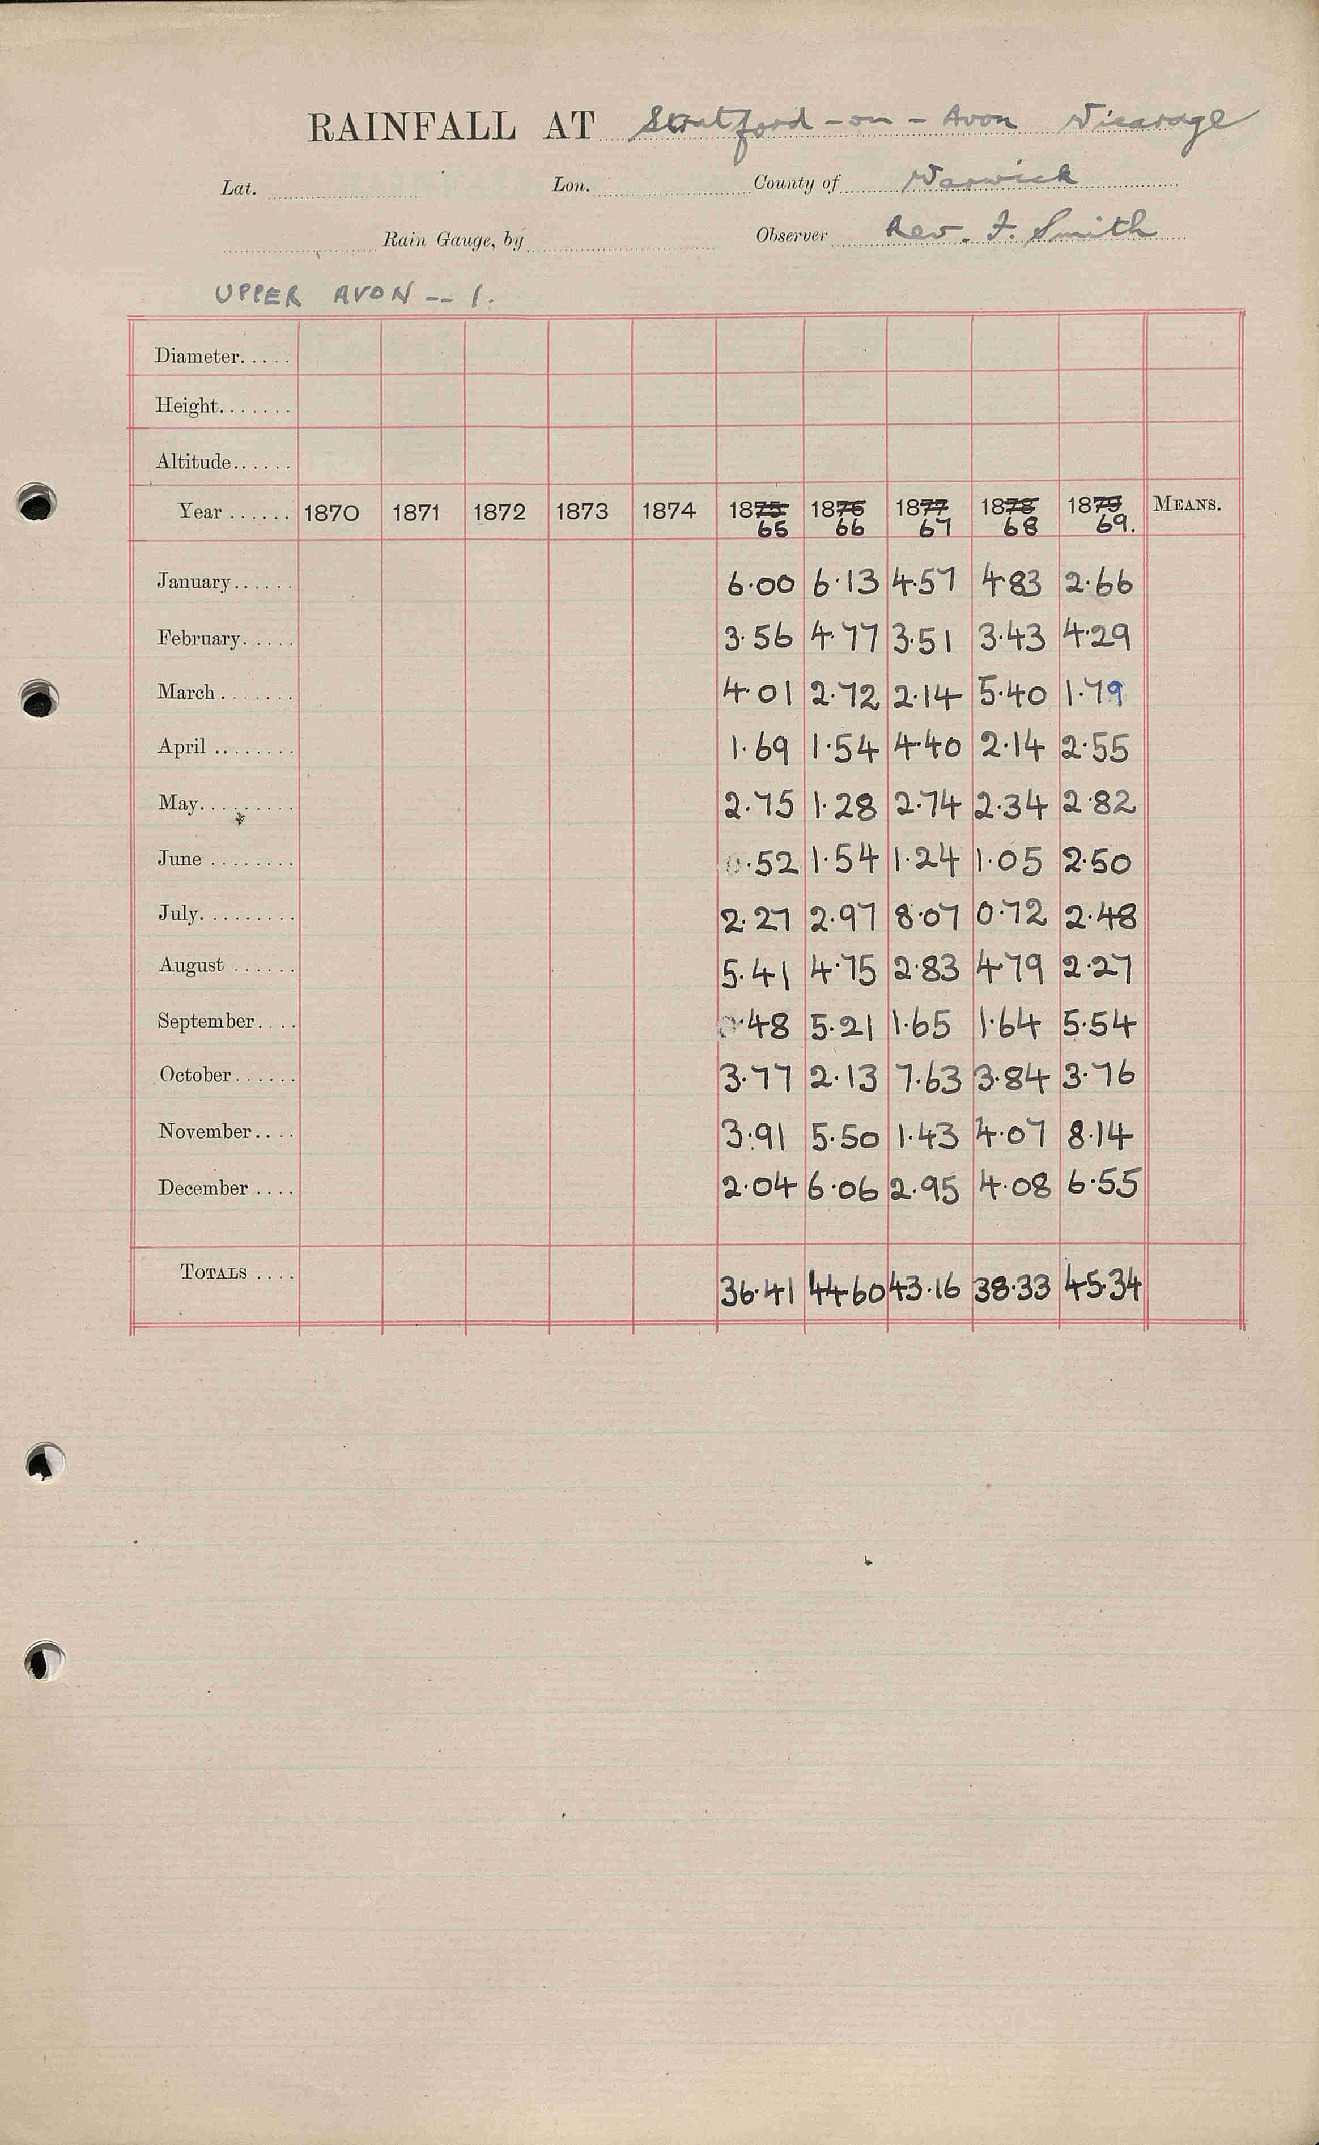 RAINFALL AT Stratford-on-Avon Vicarage
Lat. Lon. County of Warwick
Rain Gauge, by Observer Rev. F. Smith
UPPER AVON -- 1.
Diameter.....
Height.......
Altitude......
Year ...... 1870 1871 1872 1873 1874 1875 1876 1877 1878 1879 MEANS.
65 66 67 68 69.
January...... 6.00 6.13 4.57 4.83 2.66
February..... 3.56 4.77 3.51 3.43 4.29
March ....... 4.01 2.72 2.14 5.40 1.79
April ........ 1.69 1.54 4.40 2.14 2.55
May......... 2.75 1.28 2.74 2.34 2.82
June ........ 0.52 1.54 1.24 1.05 2.50
July......... 2.27 2.97 8.07 0.72 2.48
August ...... 5.41 4.75 2.83 4.79 2.27
September.... 0.48 5.21 1.65 1.64 5.54
October...... 3.77 2.13 7.63 3.84 3.76
November.... 3.91 5.50 1.43 4.07 8.14
December .... 2.04 6.06 2.95 4.08 6.55
TOTALS .... 36.41 44.60 43.16 38.33 45.34